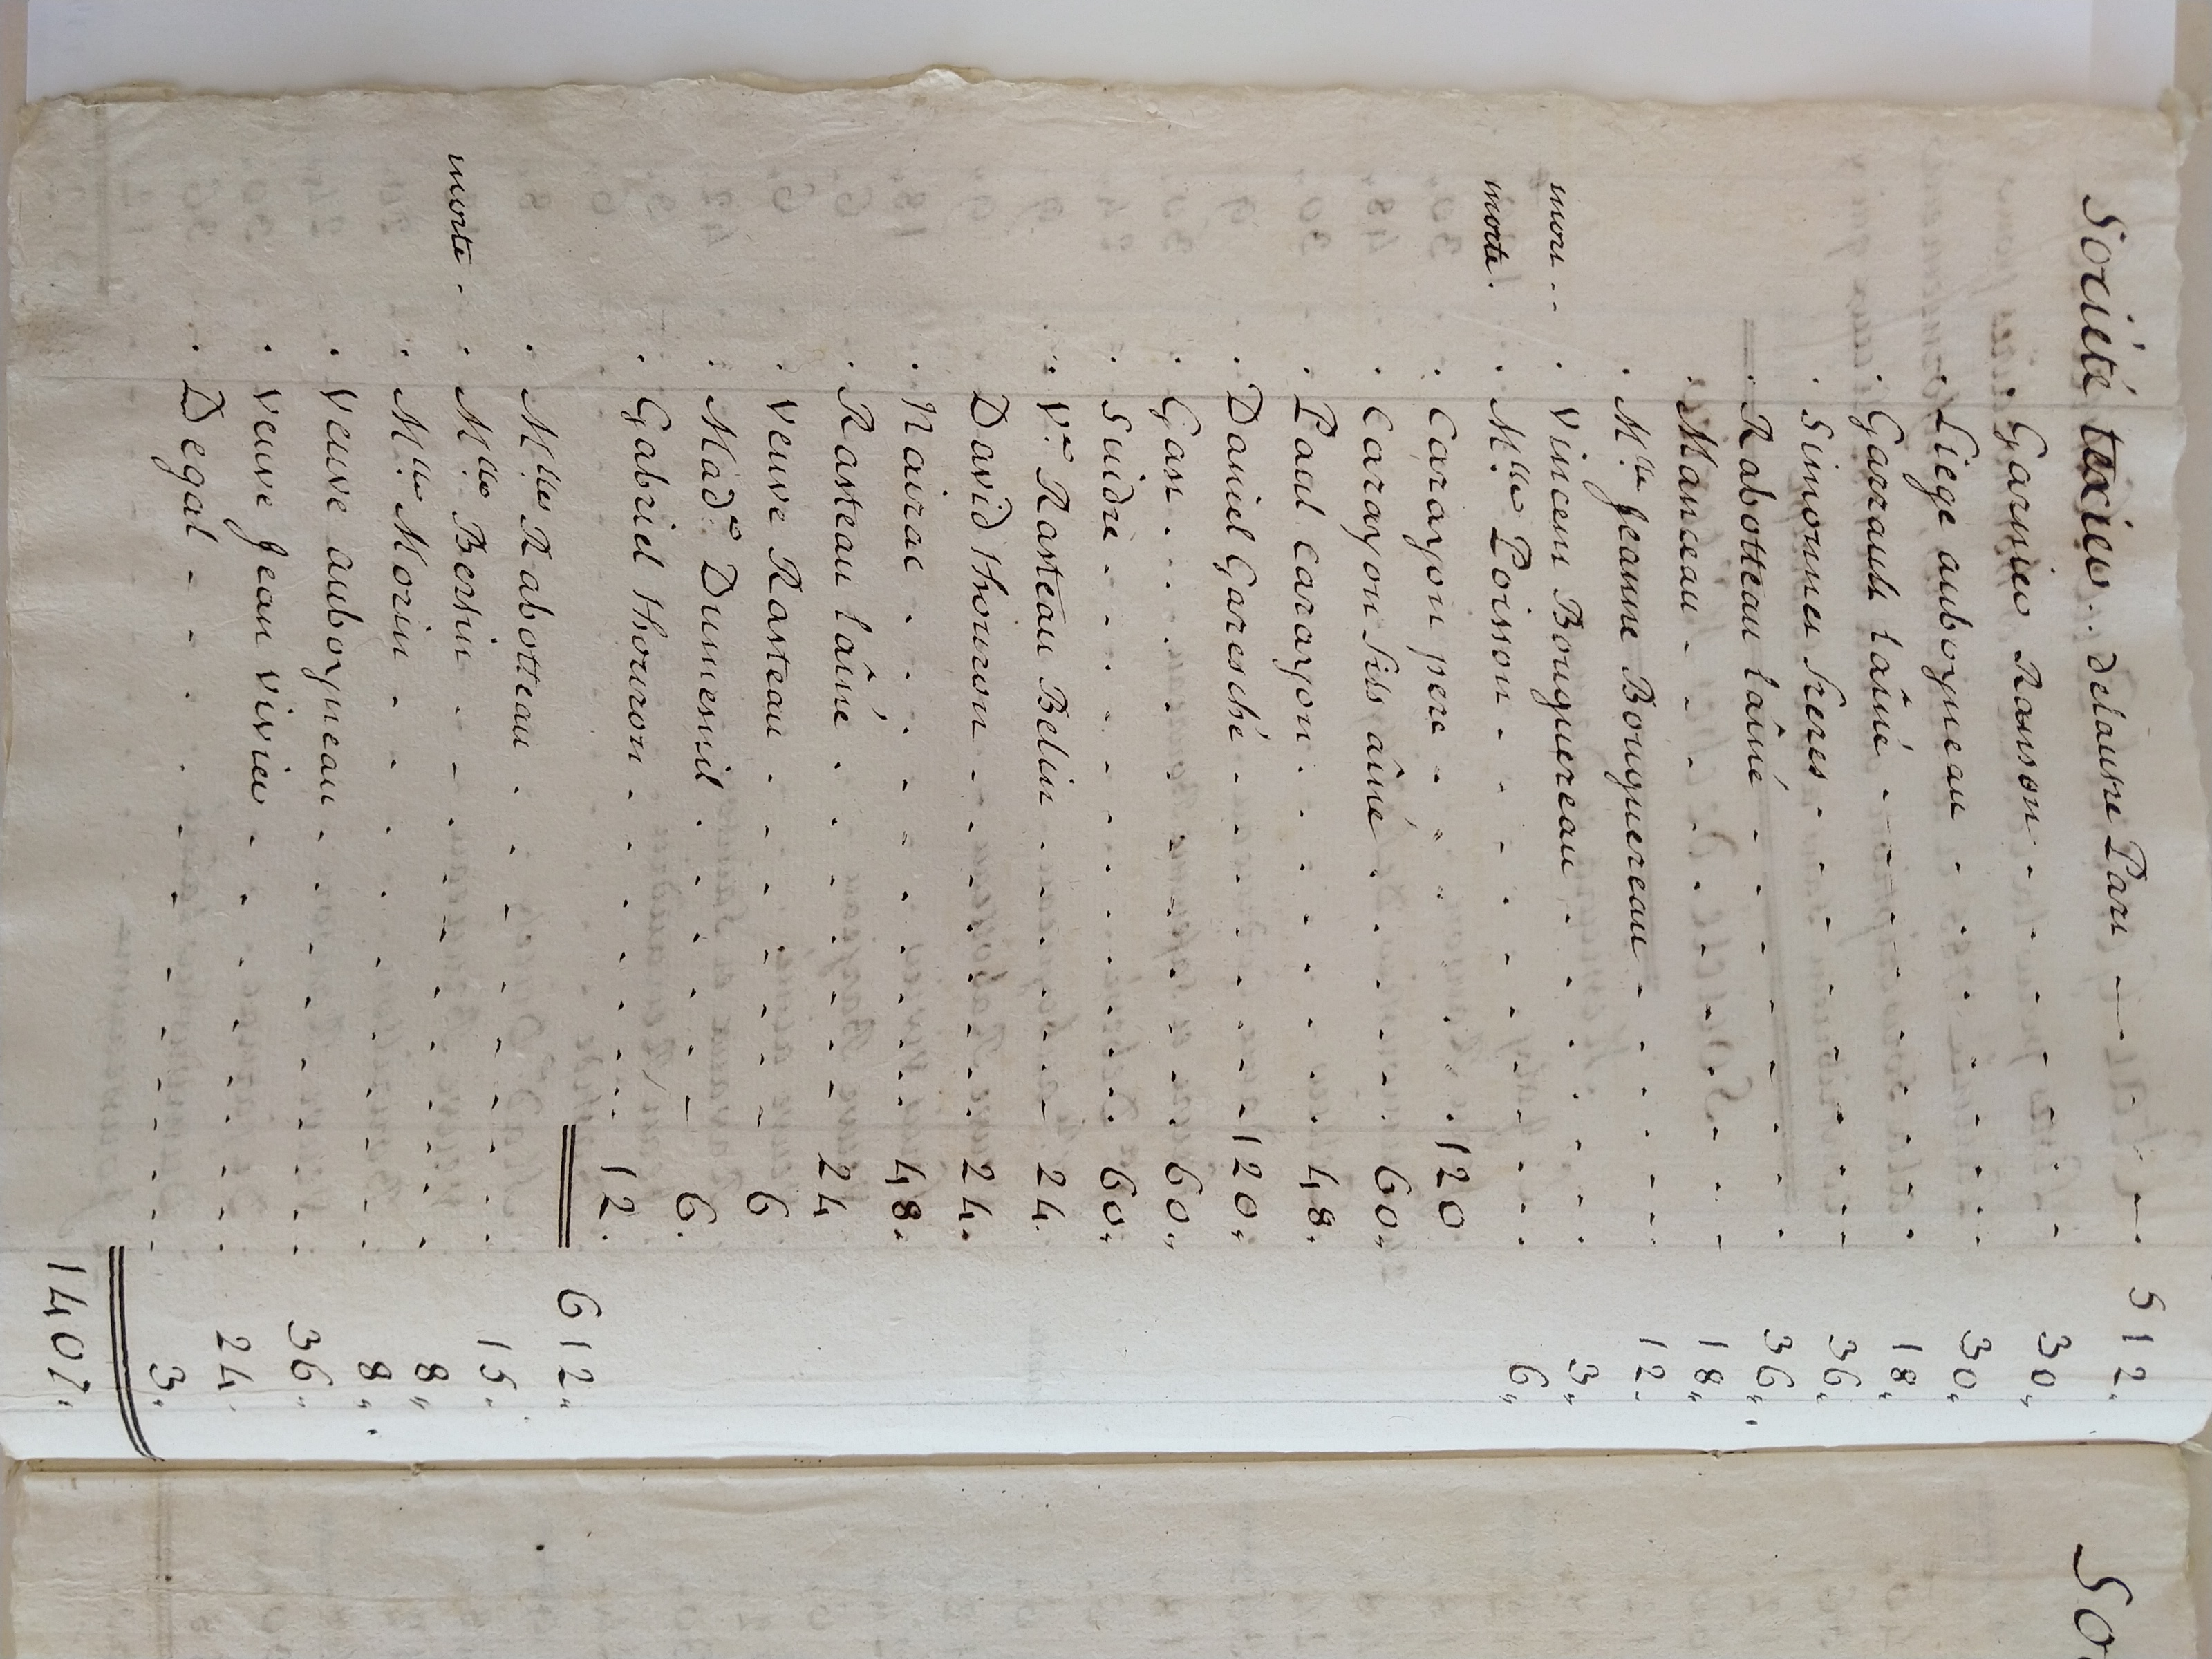 Société texier. delautre Part — 512„
. Garnier Ranson . . . 30„
. Liege auboyneau . . . 30„
. Garrault l'aîné . . . 18„
. Simonnet freres . . . 36„
. Rabotteau l'aîné . . . 36„
. Manceau . . . 18„
. M.lle Jeanne Bouguereau . . . 12„
mort . . . Vincent Bouguereau . . . 3„
morte . . M.lle Poisson . . . 6„
. Carayon pere . . . 120
. Carayon fils aîné . . . 60„
. Paul Carayon . . . 48„
. Daniel Garesché . . . 120„
. Gast . . . 60„
. Suidre . . . 60„
. V.e Rasteau Belin . . . 24.
David thouron . . . 24.
. Nairac . . . 48.
. Rasteau l'aîné . . . 24
. Veuve Rasteau . . . 6
. Mad.e Dumesnil . . . 6.
. Gabriel thouron . . . 12.
612„
. M.lles Rabotteau . . . 15.
morte . . M.lle Bertin . . . 8„
. M.lle Morin . . . 8„
. Veuve auboyneau . . . 36„
. Veuve Jean Vivier . . . 24.
. Degal . . . 3„
1407„
So